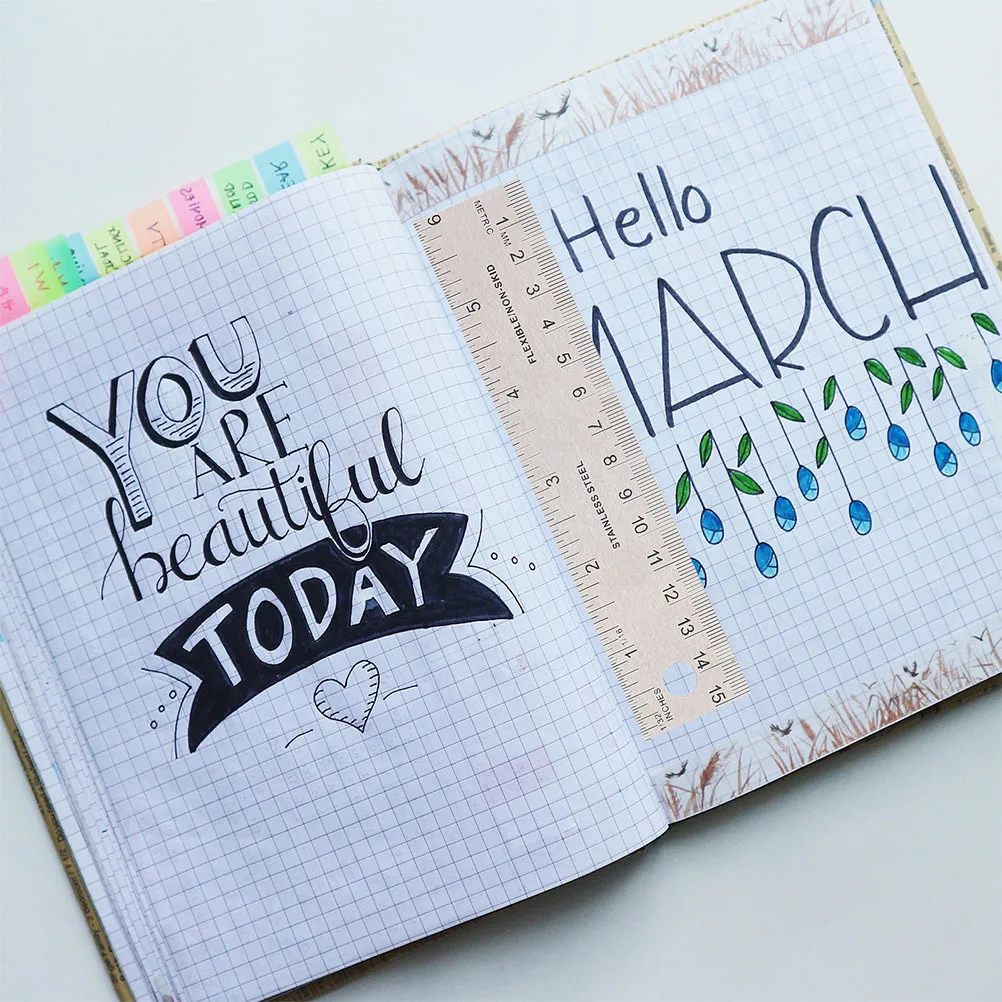 YOU
ARE
beautiful
TODAY
KEY
Hello
MARCH
METRIC
1 MM 2 3 4 5 6 7 8 9 10 11 12 13 14 15
FLEXIBLE/NON-SKID
STAINLESS STEEL
6 5 4 3 2 1
1/16
1/32
INCHES